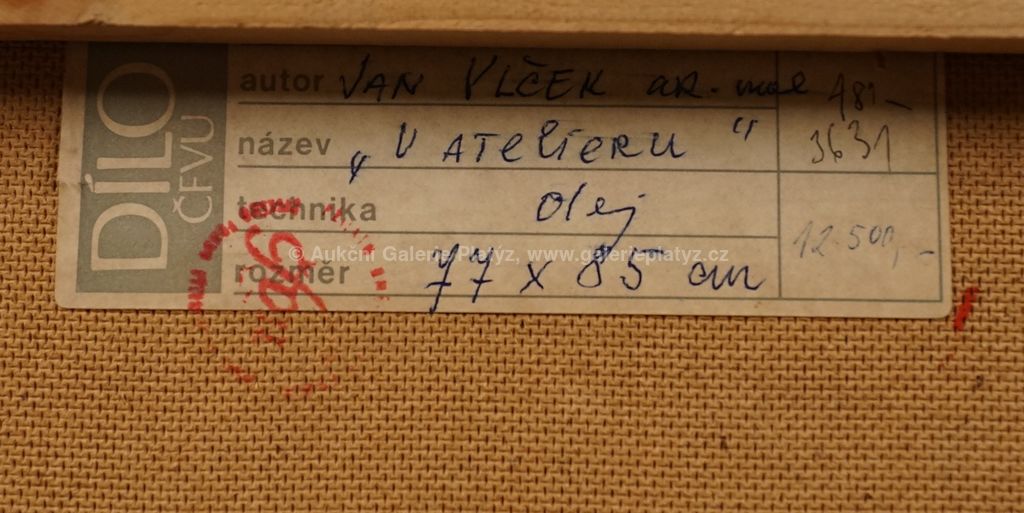 DÍLO
ČFVU
autor VAN VLČEK ak. mal 181-
název „V ATELIERU" 3631
technika olej
© Aukční Galerie Platýz, www.galerieplatyz.cz
12.500,-
rozměr 77 x 85 cm